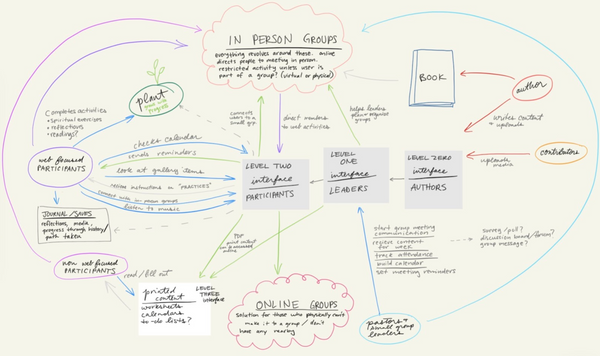 IN PERSON GROUPS
everything revolves around these. online
directs people to meeting in person.
restricted activity unless user is
part of a group! (virtual or physical)
BOOK
author
writes content
+ uploads
contributors
uploads
media
plant
Completes activities
• spiritual exercises
• reflections
• readings?
connects
users to a
small grp
direct members
to web activities
helps leaders
groups
web focused
PARTICIPANTS
checks calendar
sends reminders
look at gallery items
review instructions on "PRACTICES"
connect with in-person groups
listen to music
LEVEL TWO
interface
PARTICIPANTS
LEVEL
ONE
interface
LEADERS
LEVEL ZERO
interface
AUTHORS
JOURNAL/SAVES
reflections, media,
progress through history/
path taken
start group meeting
communication
review content
for week
trace attendance
build calendar
set meeting reminders
survey/poll?
discussion board/forum?
group message?
non web focused
PARTICIPANTS
read/fill out
PDF
print output
printed
content
worksheets
calendars
to-do lists?
LEVEL
THREE
interface
ONLINE GROUPS
solution for those who physically can't
make it to a group / don't
have any nearby
pastors +
small group
leaders